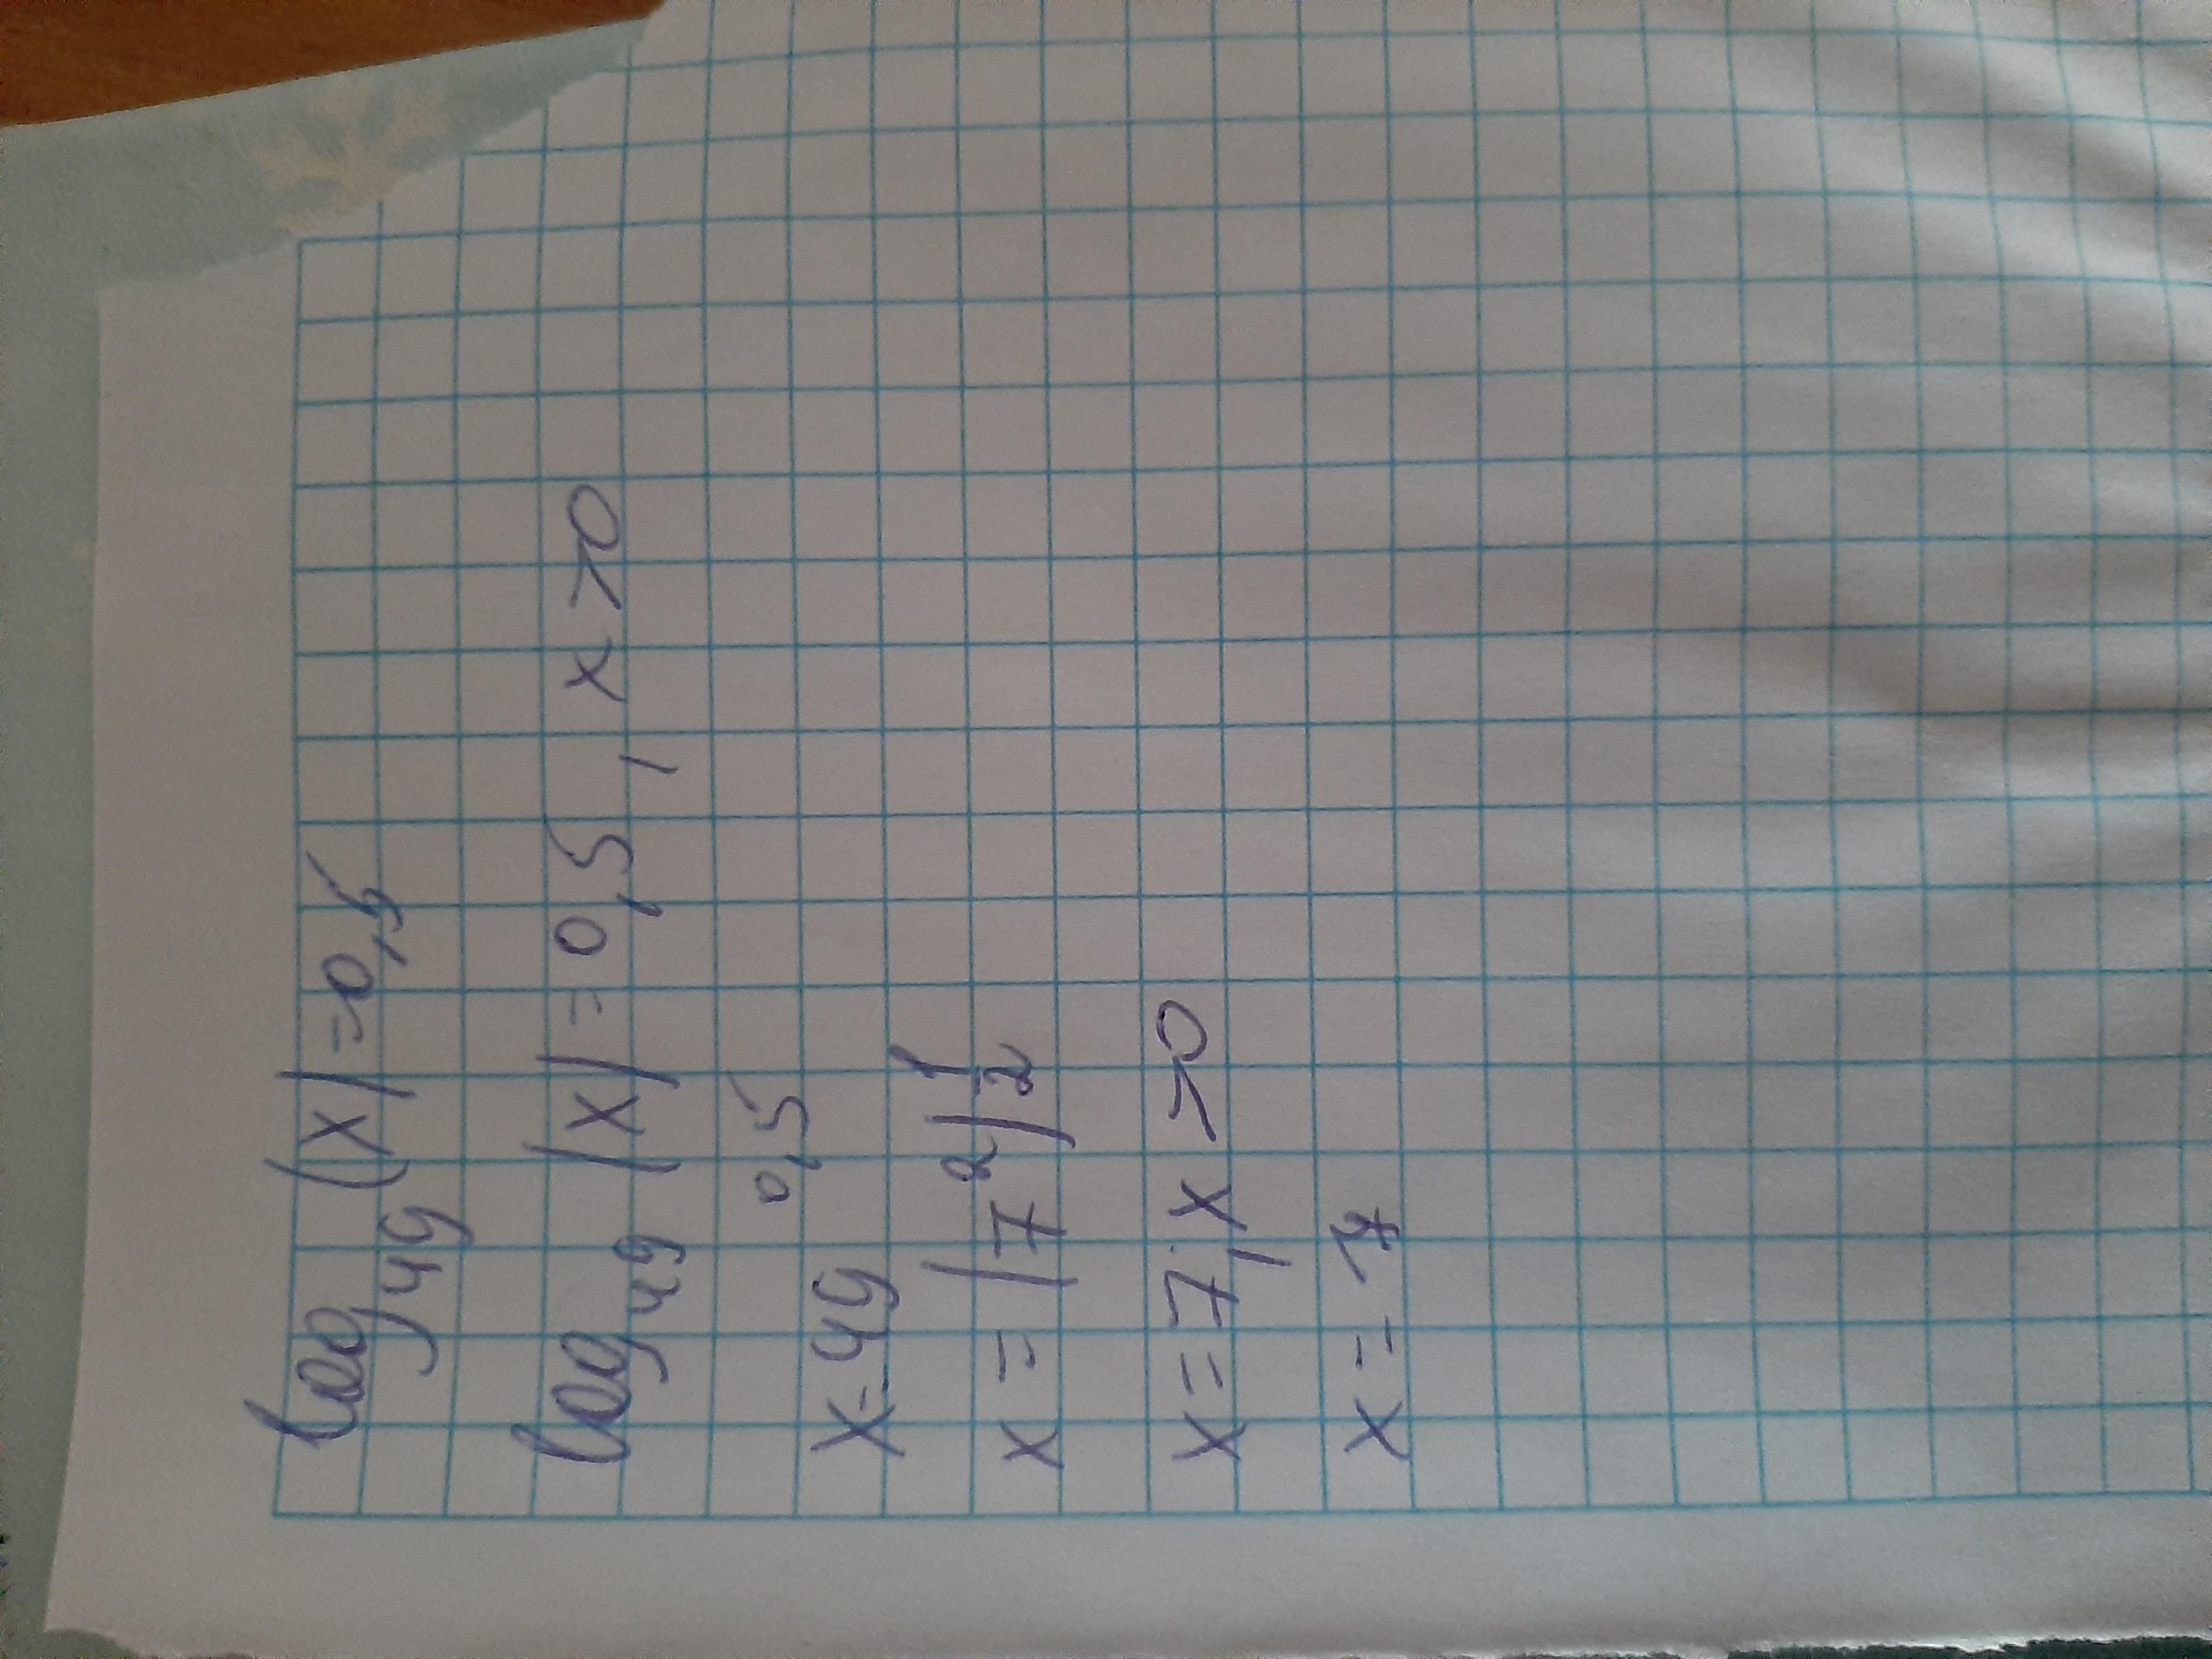 log₄₉(x)=0,5
log₄₉(x)=0,5, x>0
x=49^0,5
x=(7²)^1/2
x=7, x>0
x=7